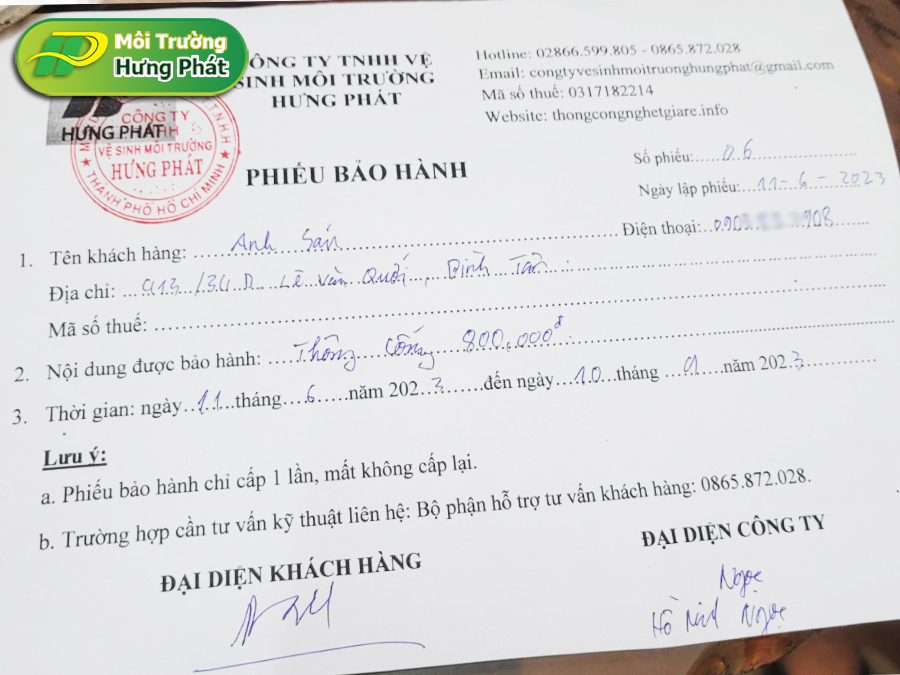 Môi Trường
Hưng Phát
CÔNG TY TNHH VỆ
SINH MÔI TRƯỜNG
HƯNG PHÁT
Hotline: 02866.599.805 - 0865.872.028
Email: congtyvesinhmoitruonghungphat@gmail.com
Mã số thuế: 0317182214
Website: thongcongnghetgiare.info
HƯNG PHÁT
CÔNG TY
TNHH
VỆ SINH MÔI TRƯỜNG
HƯNG PHÁT
THÀNH PHỐ HỒ CHÍ MINH
PHIẾU BẢO HÀNH
Số phiếu: 06
Ngày lập phiếu: 11-6-2023
1. Tên khách hàng: Anh Sán Điện thoại: 0905 908
Địa chỉ: 913/34 D Lê Văn Quới, Bình Tân
Mã số thuế:
2. Nội dung được bảo hành: Thông Cống 800,000đ
3. Thời gian: ngày 11 tháng 6 năm 2023 đến ngày 10 tháng 9 năm 2023
Lưu ý:
a. Phiếu bảo hành chỉ cấp 1 lần, mất không cấp lại.
b. Trường hợp cần tư vấn kỹ thuật liên hệ: Bộ phận hỗ trợ tư vấn khách hàng: 0865.872.028.
ĐẠI DIỆN KHÁCH HÀNG
ĐẠI DIỆN CÔNG TY
Ngọc
Hồ Ngọc